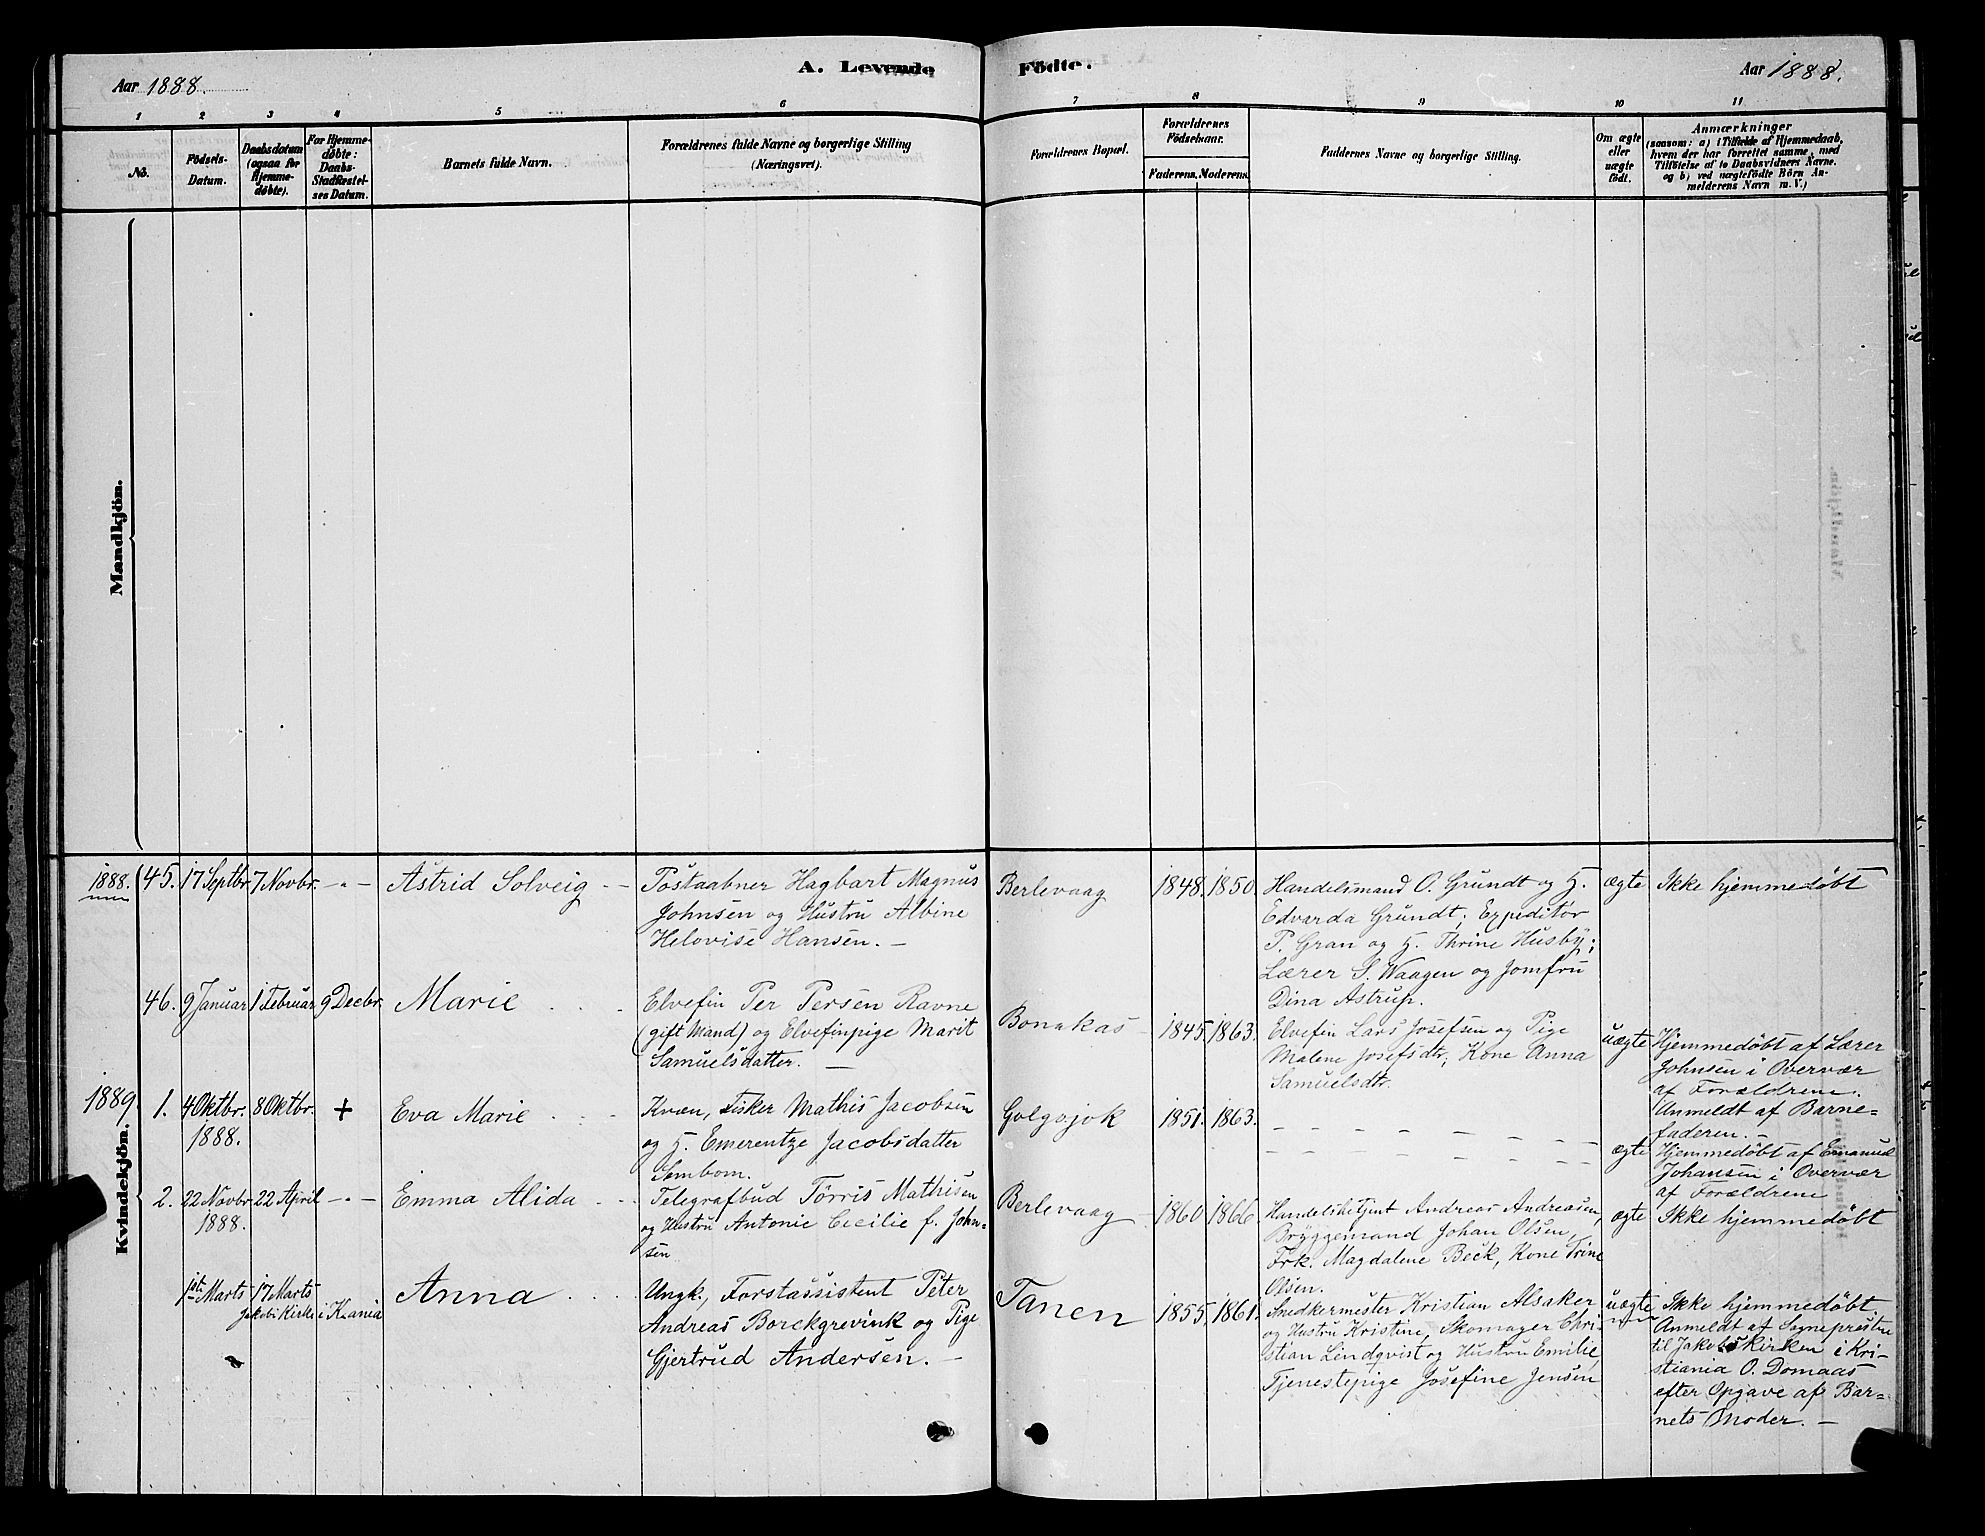 Aar 1888.
A. Levende
Födte.
Aar 1888.
1 2 3 4 5 6 7 8 9 10 11
No.
Födsels-
Datum.
Daabsdatum
(ogsaa for
Hjemme-
døbte).
For Hjemme-
døbte:
Daabs-
Stadfæstel-
ses Datum.
Barnets fulde Navn.
Forældrenes fulde Navne og borgerlige Stilling
(Næringsvei).
Forældrenes Bopæl.
Forældrenes
Födselsaar.
Faderens. Moderens.
Faddernes Navne og borgerlige Stilling.
Om ægte
eller
uægte
født.
Anmærkninger
(saasom: a) i Tilfælde af Hjemmedaab,
hvem der har forrettet samme, med
Tilföielse af to Daabsvidners Navne.
og b) ved uægtefödte Börn An-
melderens Navn m. V.)
Mandkjön.
Kvindekjön.
1888.
45. 17 Septbr. 7 Novbr. -"- Astrid Solveig --
Postaabner Hagbart Magnus
Johnsen og Hustru Albine
Helovise Hansen. —
Berlevaag 1848. 1850.
Handelsmand O. Grundt og H.
Edvarda Grundt; Expeditør
P. Gran og H. Thrine Husby;
Lærer S. Waagen og Jomfru
Dina Astrup.
ægte Ikke hjemmedøbt
46. 9 Januar 1 Februar 9 Decbr. Marie
Elvefin Per Persen Ravne
(gift Mand) og Elvefinpige Marit
Samuelsdatter. —
Bonakas 1845. 1863.
Elvefin Lars Josefsen og Pige
Malene Josefsdtr, Kone Anna
Samuelsdtr.
uægte Hjemmedøbt af Lærer
Johnsen i Overvær
af Forældrene.
Anmeldt af Barne=
faderen. —
1889.
1. 4 Oktbr. 8 Oktbr. + Eva Marie
1888.
Kvæn, Fisker Mathis Jacobsen
og H. Emerentze Jacobsdatter
Sembom.
Golgojok 1851. 1863.
ægte Hjemmedøbt af Emanuel
Johansen i Overvær
af Forældrene
2. 22 Novbr 22 April -"- Emma Alida
1888.
Telegrafbud Törris Mathisen
og Hustru Antonie Cecilie f. John-
sen
Berlevaag 1860. 1866.
Handelsbetjent Andreas Andreasen,
Bryggemand Johan Olsen,
Frk. Magdalene Beck, Kone Trine
Olsen.
ægte Ikke hjemmedøbt
1ste Marts 17 Marts
Jakobs Kirke i K.ania
Anna
Ungk., Forstassistent Peter
Andreas Borckgrevink og Pige
Gjertrud Andersen. —
Tanen 1855. 1861.
Snedkermester Kristian Alsaker
og Hustru Kristine, Skomager Chri-
stian Lindqvist og Hustru Emilie,
Tjenestepige Josefine Jensen
uægte Ikke hjemmedøbt.
Anmeldt af Sognepresten
til Jakobskirken i Kri-
stiania O. Domaas
efter Opgave af Bar=
nets Moder. —